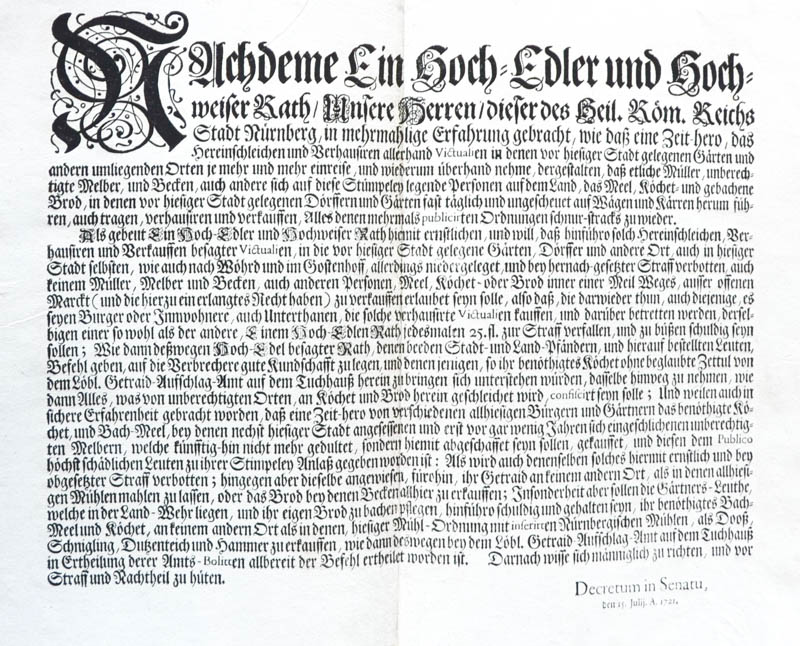 NAchdeme Ein Hoch-Edler und Hoch-
weiser Rath/ Unsere Herren/ dieser des Heil. Röm. Reichs
Stadt Nürnberg, in mehrmahlige Erfahrung gebracht, wie daß eine Zeit-hero, das
Hereinschleichen und Verhausiren allerhand Victualien in denen vor hiesiger Stadt gelegenen Gärten und
andern umliegenden Orten je mehr und mehr einreise, und wiederum überhand nehme, dergestalten, daß etliche Müller, unberech-
tigte Melber, und Becken, auch andere sich auf diese Stümpeley legende Personen auf dem Land, das Meel, Köchet- und gebachene
Brod, in denen vor hiesiger Stadt gelegenen Dörffern und Gärten fast täglich und ungescheuet auf Wägen und Kärren herum füh-
ren, auch tragen, verhausiren und verkauffen, Alles denen mehrmals publicirten Ordnungen schnur-stracks zu wieder.
Als gebeut Ein Hoch-Edler und Hochweiser Rath hiemit ernstlichen, und will, daß hinführo solch Hereinschleichen, Ver-
hausiren und Verkauffen besagter Victualien, in die vor hiesiger Stadt gelegene Gärten, Dörffer und andere Ort, auch in hiesiger
Stadt selbsten, wie auch nach Wöhrd und im Gostenhoff, allerdings niedergeleget, und bey hernach-gesetzter Straff verbotten, auch
keinem Müller, Melber und Becken, auch anderen Personen, Meel, Köchet- oder Brod inner einer Meil Weges, ausser offenen
Marckt (und die hierzu ein erlangtes Recht haben) zu verkauffen erlaubet seyn solle, also daß, die darwieder thun, auch diejenige, es
seyen Burger oder Innwohnere, auch Unterthanen, die solche verhausirte Victualien kauffen, und darüber betretten werden, dersel-
bigen einer so wohl als der andere, Einem Hoch-Edlen Rath jedesmalen 25. fl. zur Straff verfallen, und zu büßen schuldig seyn
sollen; Wie dann deßwegen Hoch-Edel besagter Rath, denen beeden Stadt- und Land-Pfändern, und hierauf bestellten Leuten,
Befehl geben, auf die Verbrechere gute Kundschafft zu legen, und denen jenigen, so ihr benöthigtes Köchet ohne beglaubte Zettul von
dem Löbl. Getraid-Aufschlag-Amt auf dem Tuchhauß herein zu bringen sich unterstehen würden, dasselbe hinweg zu nehmen, wie
dann Alles, was von unberechtigten Orten, an Köchet und Brod herein geschleichet wird, confiscirt seyn solle; Und weilen auch in
sichere Erfahrenheit gebracht worden, daß eine Zeit-hero von verschiedenen allhiesigen Bürgern und Gärtnern das benöthigte Kö-
chet, und Bach-Meel, bey denen nechst hiesiger Stadt angesessenen und erst vor gar wenig Jahren sich eingeschlichenen unberechtig-
ten Melbern, welche künfftig-hin nicht mehr gedultet, sondern hiemit abgeschaffet seyn sollen, gekauffet, und diesen dem Publico
höchst schädlichen Leuten zu ihrer Stimpeley Anlaß gegeben worden ist: Als wird auch denenselben solches hiermit ernstlich und bey
obgesetzter Straff verbotten; hingegen aber dieselbe angewiesen, fürohin, ihr Getraid an keinem andern Ort, als in denen allhiesi-
gen Mühlen mahlen zu lassen, oder das Brod bey denen Becken allhier zu erkauffen; Insonderheit aber sollen die Gärtners-Leuthe,
welche in der Land-Wehr liegen, und ihr eigen Brod zu bachen pflegen, hinführo schuldig und gehalten seyn, ihr benöthigtes Bach-
Meel und Köchet, an keinem andern Ort als in denen, hiesiger Mühl-Ordnung mit inserirten Nürnbergischen Mühlen, als Dooß,
Schnigling, Dutzenteich und Hammer zu erkauffen, wie dann deswegen bey dem Löbl. Getraid-Aufschlag-Amt auf dem Tuchhauß
in Ertheilung derer Amts-Boliten allbereit der Befehl ertheilet worden ist. Darnach wisse sich männiglich zu richten, und vor
Straff und Nachtheil zu hüten.
Decretum in Senatu,
den 15. Julij. A. 1721.